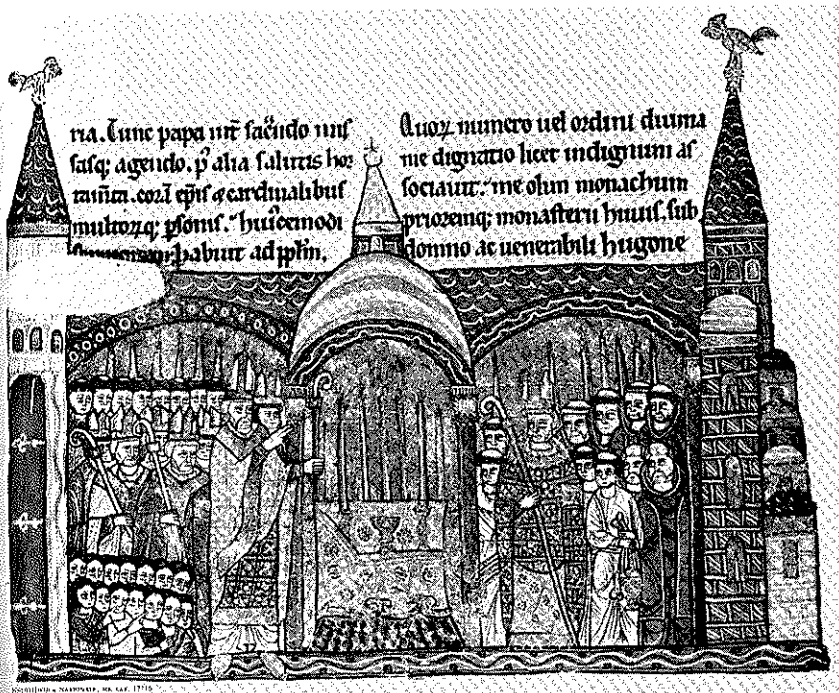 ria. Tunc papa int̄ sac̄ndo mis
sasq; agendo. p̄ alia salutis hor
tam̄ta. corā ep̄is & cardinalibus
multoꝝq; p̄sonis. huiꝰcemodi
habuit ad pp̄lm,
Quoꝝ numero uel ordini diuina
me dignatio licet indignum as
sociauit. me olim monachum
prioremq; monasterii huius. sub
domno ac uenerabili hugone
NATIONALE, MS. LAT. 17716